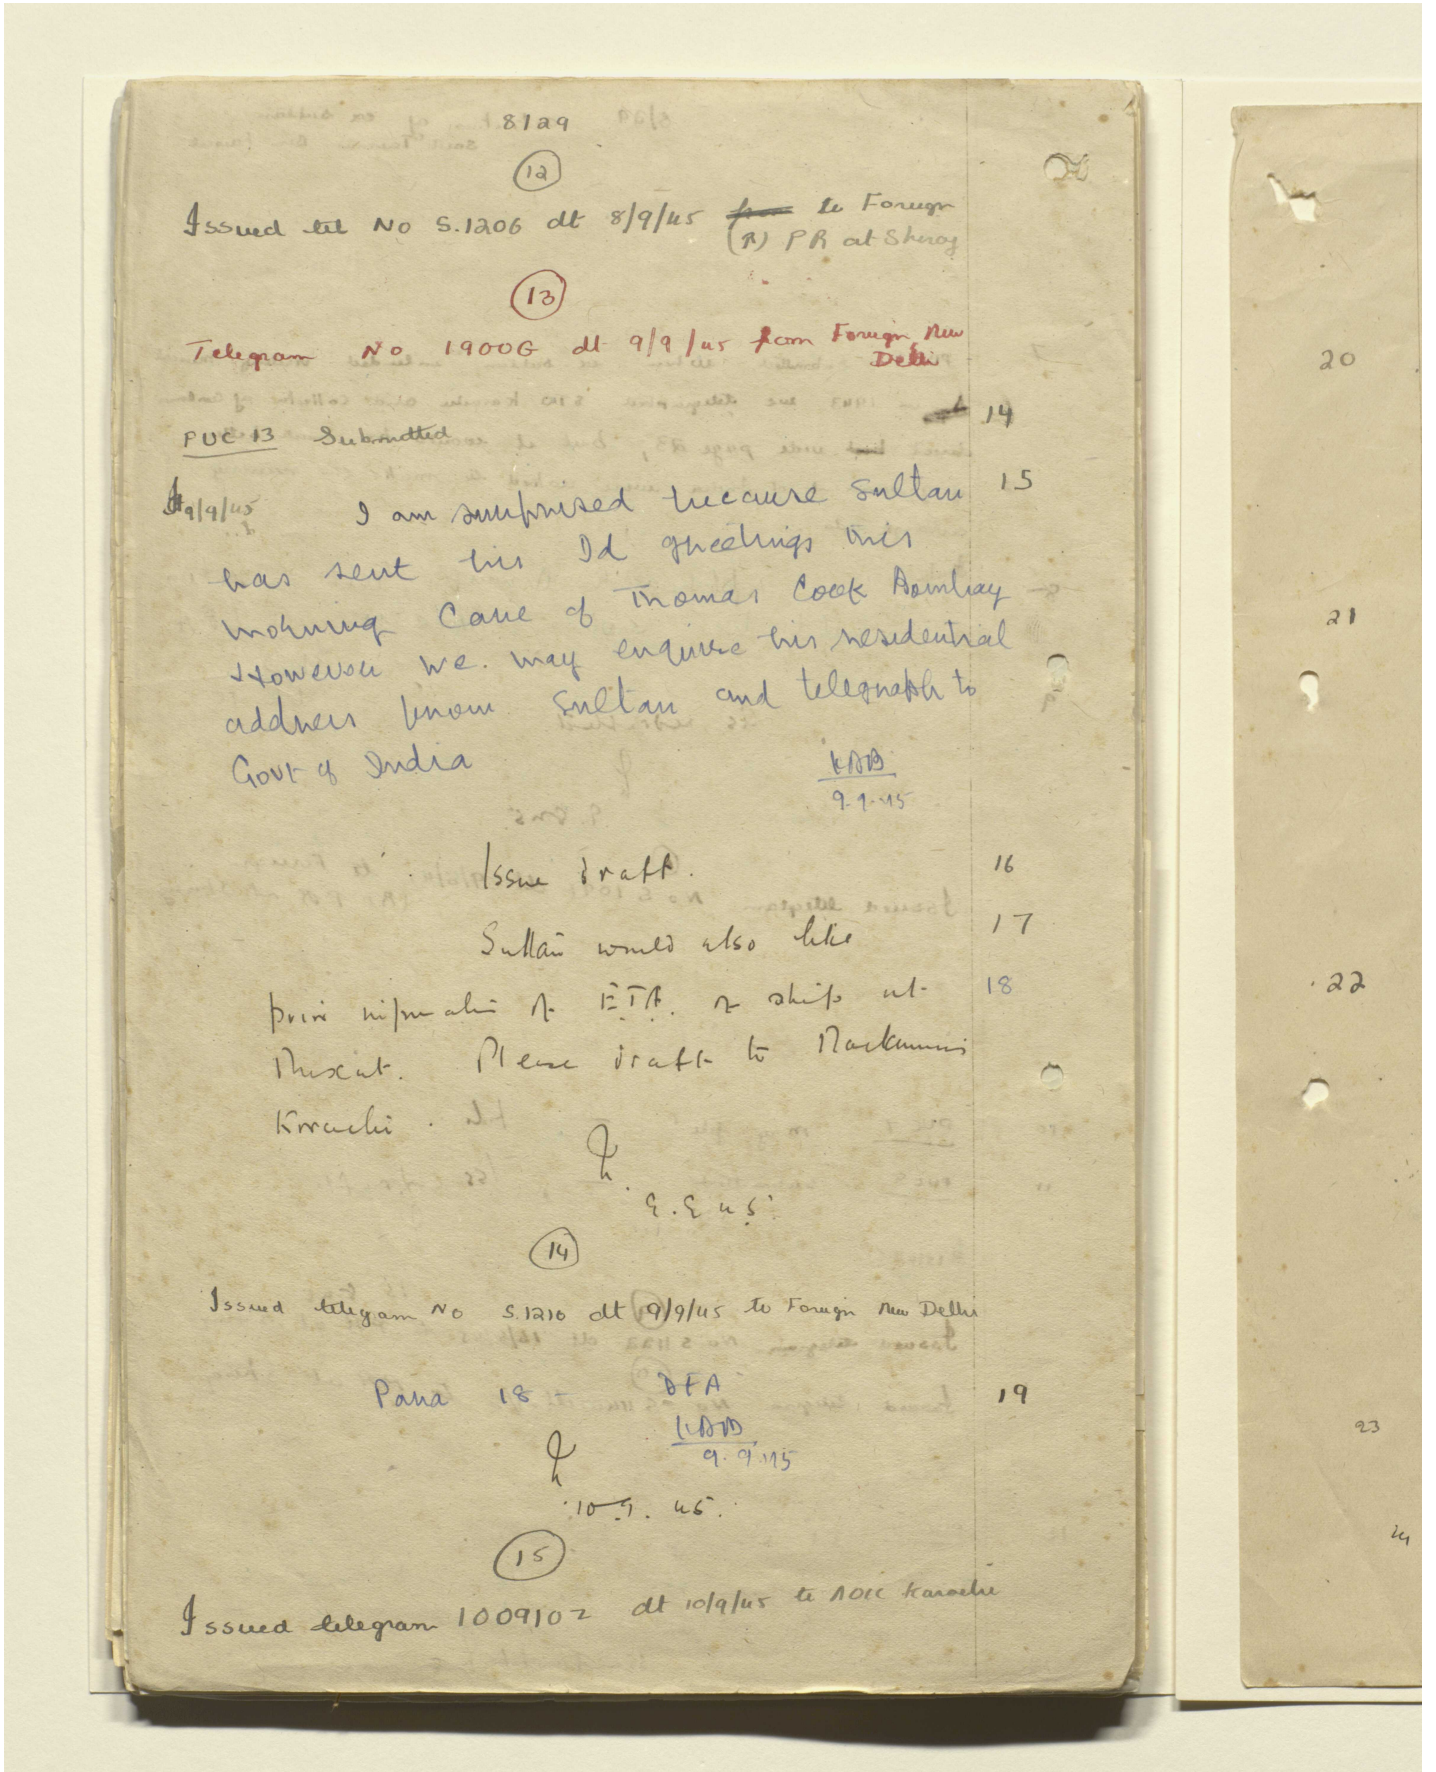 8/29
12
Issued tel No S.1206 dt 8/9/45 to Foreign
(R) PR at Shiraz
13
Telegram No 1900G dt 9/9/45 from Foreign, New
Delhi
14
PUC 13 Submitted
9/9/45
I am surprised because Sultan 15
has sent his Id greetings this
morning Care of Thomas Cook Bombay
However we. may enquire his residential
address from Sultan and telegraph to
Govt of India
KAB
9.9.45
Issue draft. 16
Sultan would also like 17
prior information of E.T.A. of ship at 18
Muscat. Please draft to Mackinnons
Karachi.
9.9.45.
14
Issued telegram No S.1210 dt 9/9/45 to Foreign New Delhi
Para 18 - DFA 19
KAB
9.9.45
10.9.45.
15
Issued telegram 100910Z dt 10/9/45 to Karachi
20
21
22
23
24